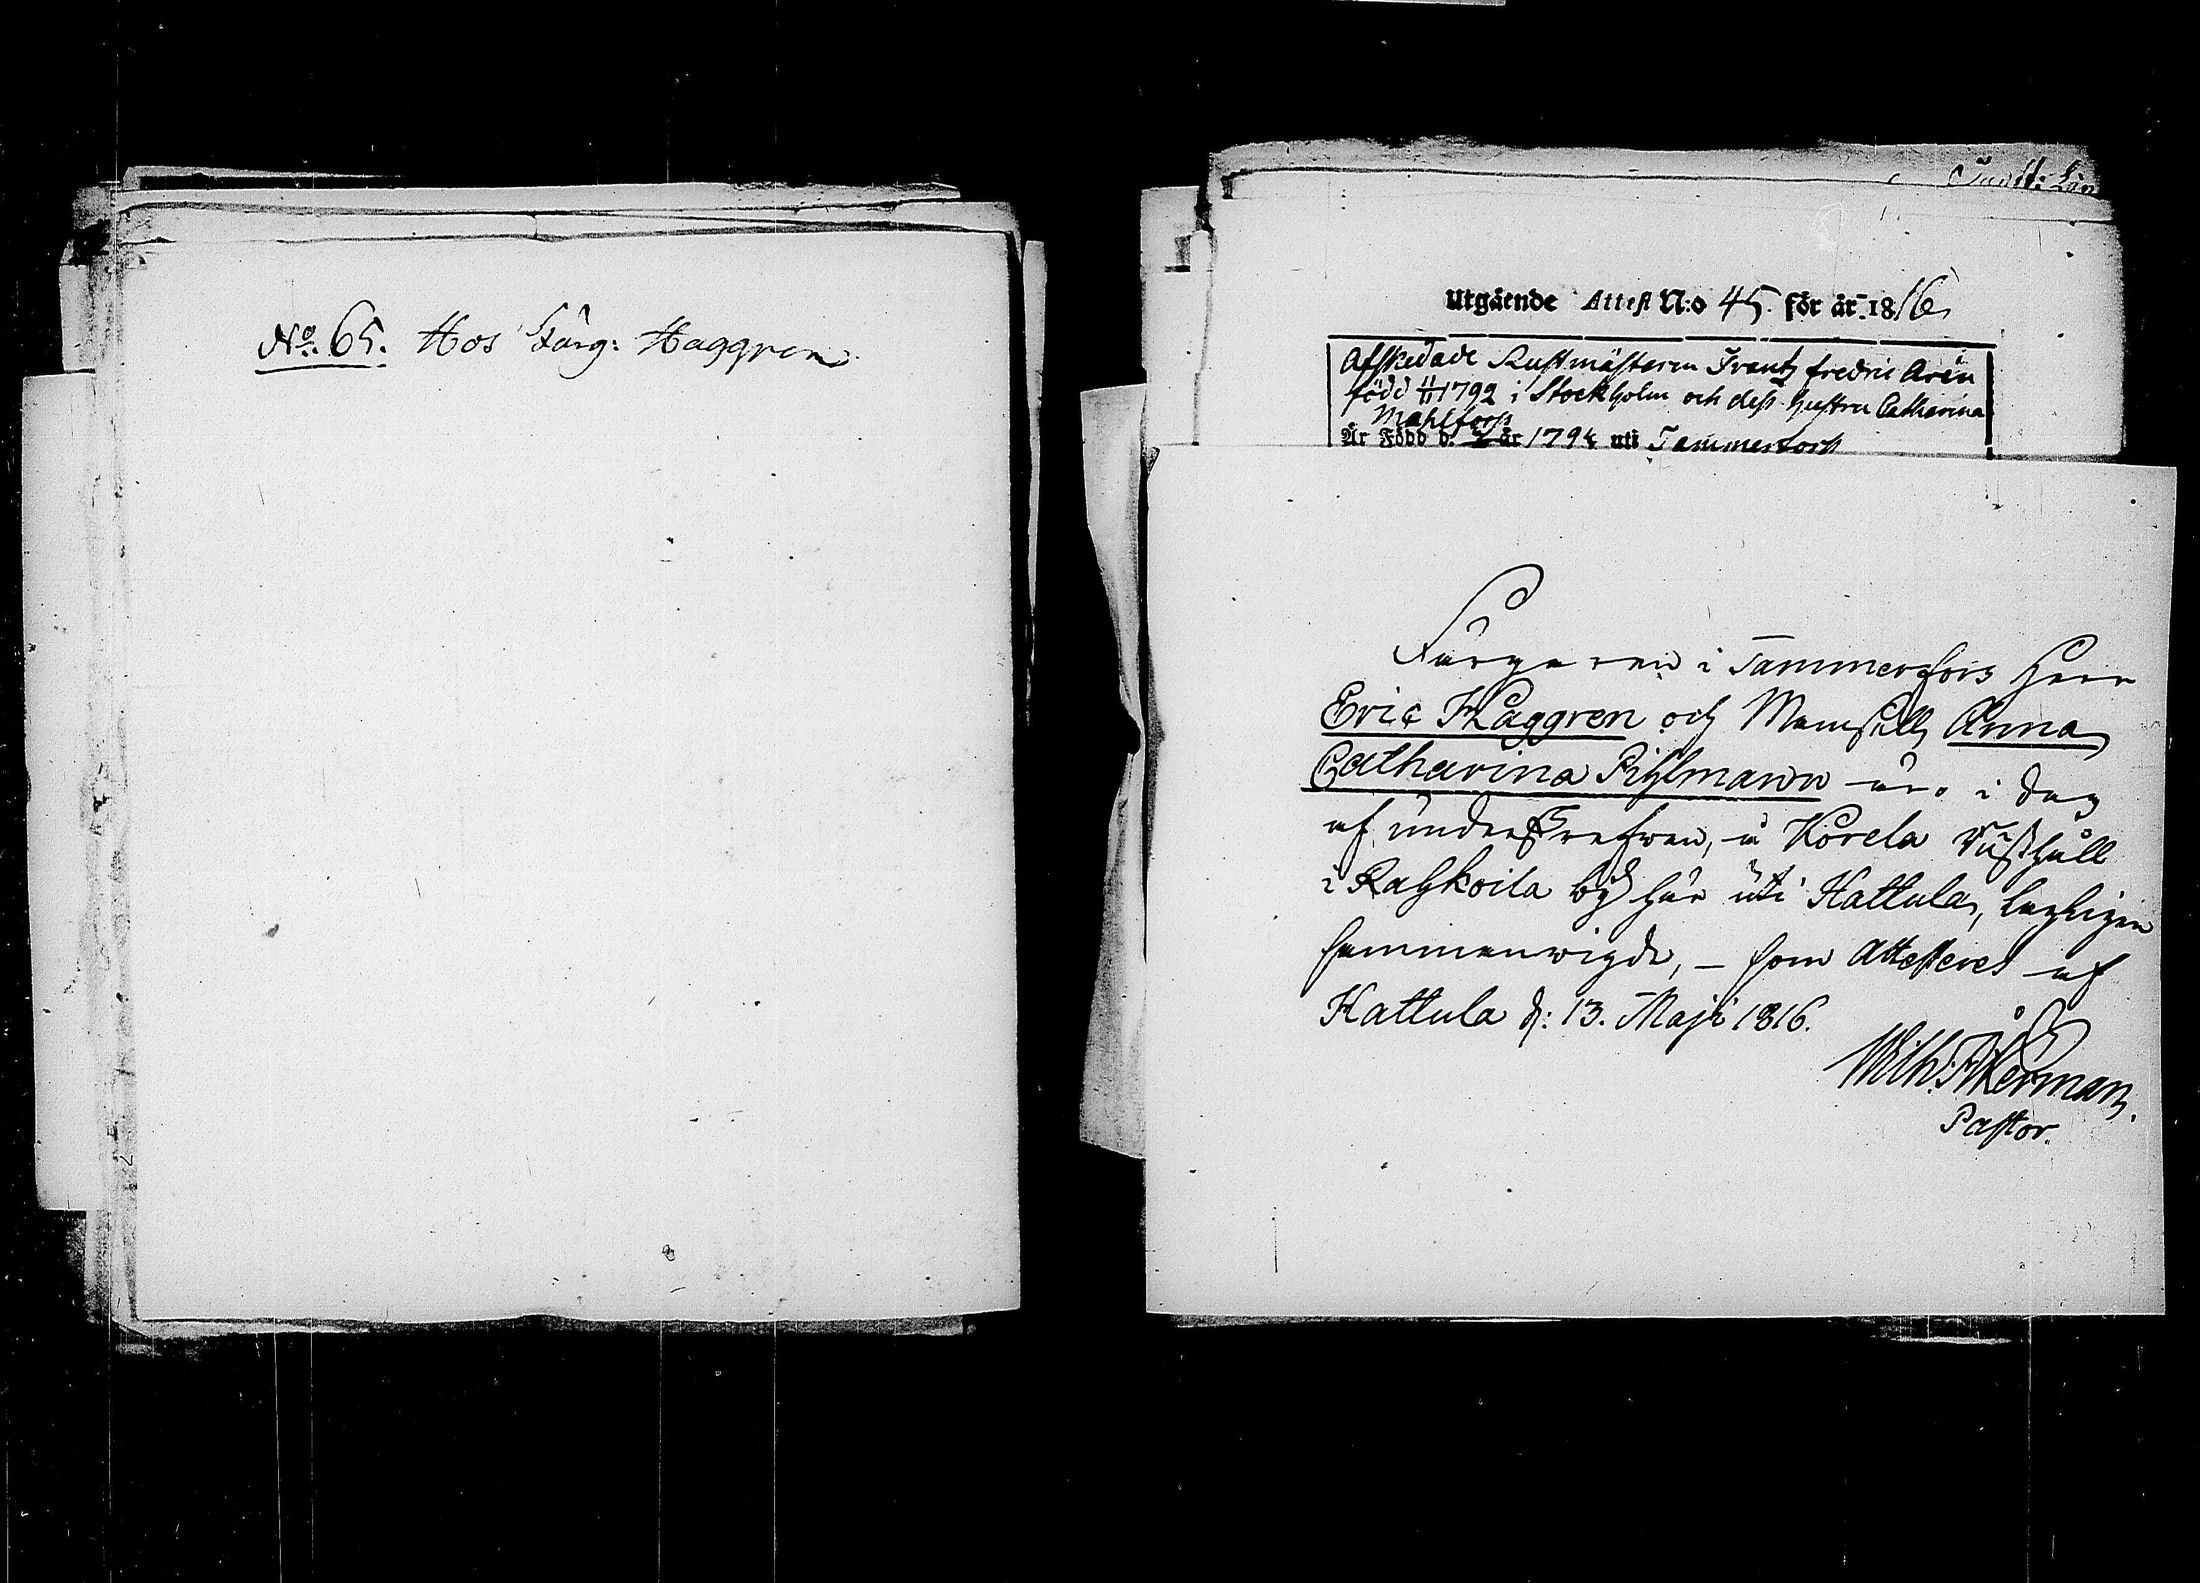 No 65. Hos Färg: Haggren
Utgående Attest N:o 45. för år 1816
Afskedade Rustmästaren Frantz fredric Arén
född 4/11 1792 i Stockholm och dess hustru Catharina
Mahlfors
Är Född d. år 1794 uti Tammerfors
Färgaren i Tammerfors Herr
Eric Haggren och Mamsell Anna
Catharina Pihlmann äro i dag
af underskrefwen, å Körela Rusthåll
i Rahkoila by här uti Hattula, lagligen
sammanwigde, – som Attesteres af
Hattula d: 13. Maji 1816.
Wilh: Åkerman.
Pastor.